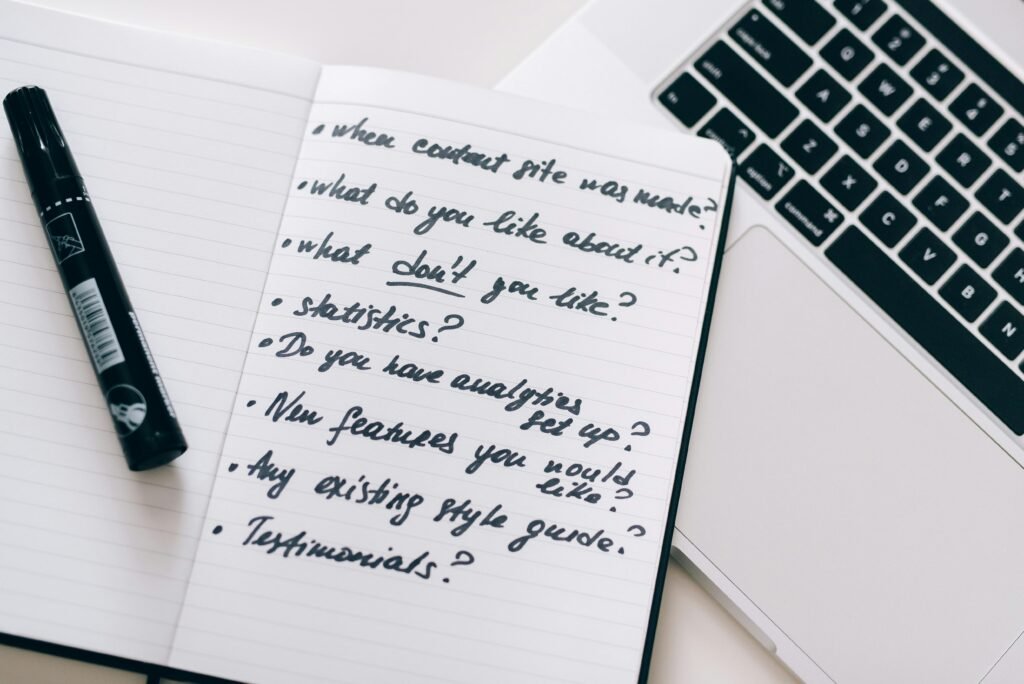 • when content site was made?
• what do you like about it?
• what don't you like?
• statistics?
• Do you have analytics
set up?
• New features you would
like?
• Any existing style guide?
• Testimonials?
@ 2 # 3 $ 4
Q W E R T
A S D F G H
shift Z X C V B N
fn option command